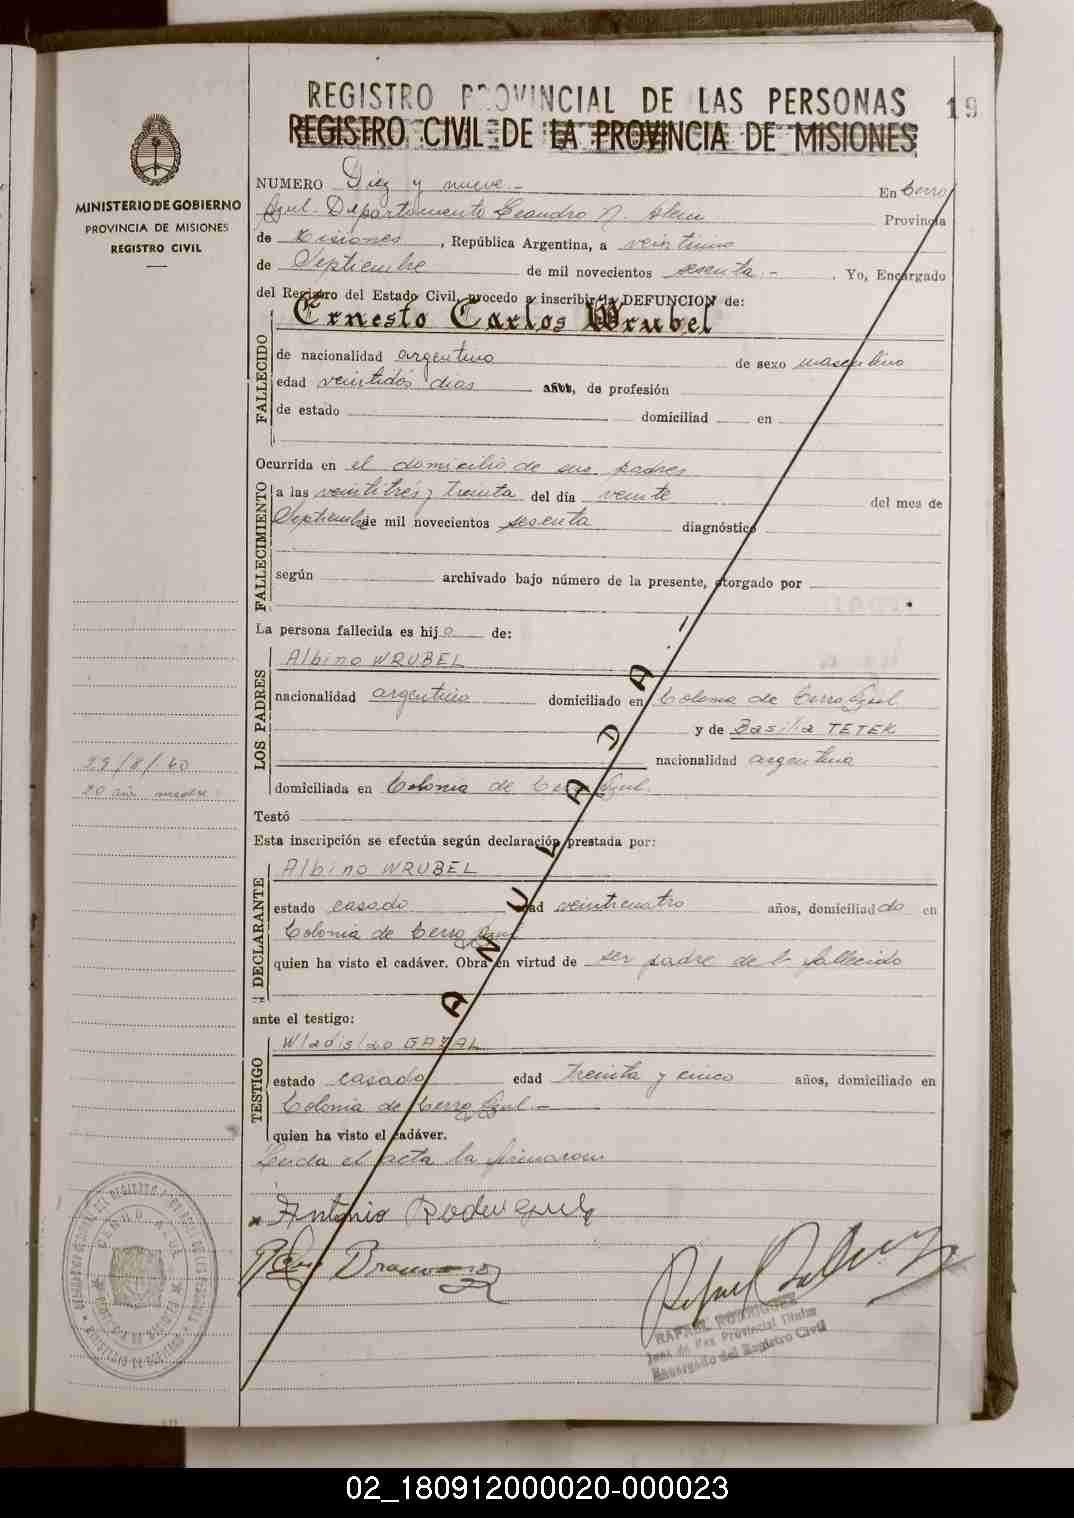 REGISTRO PROVINCIAL DE LAS PERSONAS
19
REGISTRO CIVIL DE LA PROVINCIA DE MISIONES
MINISTERIO DE GOBIERNO
PROVINCIA DE MISIONES
REGISTRO CIVIL
NUMERO Diez y nueve.- En Cerro
Azul. Departamento Leandro N. Alem Provincia
de Misiones, República Argentina, a veintiuno
de Septiembre de mil novecientos sesenta.-. Yo, Encargado
del Registro del Estado Civil, procedo a inscribir la DEFUNCION de:
Ernesto Carlos Wrubel
FALLECIDO
de nacionalidad argentino de sexo masculino
edad veintidós dias años, de profesión
de estado domiciliad en
Ocurrida en el domicilio de sus padres
FALLECIMIENTO
a las veintitrés y treinta del día veinte del mes de
Septiembre de mil novecientos sesenta diagnóstico
según archivado bajo número de la presente, otorgado por
La persona fallecida es hijo de:
LOS PADRES
Albino WRUBEL
nacionalidad argentino domiciliado en Colonia de Cerro Azul
y de Basilia TETEK
nacionalidad argentina
domiciliada en Colonia de Cerro Azul.
29/8/60
Testó
Esta inscripción se efectúa según declaración prestada por:
DECLARANTE
Albino WRUBEL
estado casado edad veinticuatro años, domiciliado en
Colonia de Cerro Azul
quien ha visto el cadáver. Obra en virtud de ser padre del fallecido
ante el testigo:
TESTIGO
Wladislao GAZAL
estado casado edad treinta y cinco años, domiciliado en
Colonia de Cerro Azul.-
quien ha visto el cadáver.
Leida el acta la firmaron
ANULADA.-
Antonio Rodriguez
RAFAEL RODRIGUEZ
Juez de Paz Provincial Titular
Encargado del Registro Civil
CERRO AZUL
02_180912000020-000023